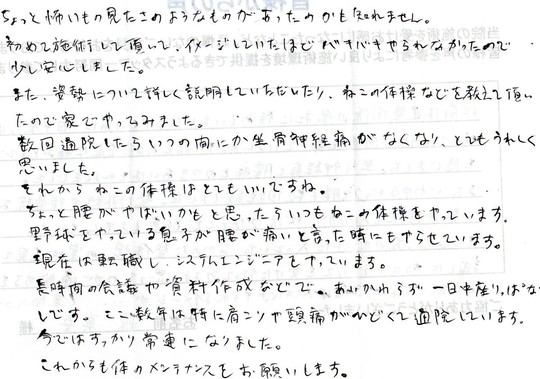 ちょっと怖いもの見たさのようなものがあったのかも知れません。
初めて施術して頂いて、イメージしていたほどバキバキやられなかったので
少し安心しました。
また、姿勢について詳しく説明していただいたり、ねこの体操などを教えて頂い
たので家でやってみました。
数回通院したらいつの間にか坐骨神経痛がなくなり、とてもうれしく
思いました。
それからねこの体操はとてもいいですね。
ちょっと腰がやばいかもと思ったらいつもねこの体操をやっています。
野球をやっている息子が腰が痛いと言った時にもやらせています。
現在は転職し、システムエンジニアをやっています。
長時間の会議や資料作成などで、あいかわらず一日中座りっぱなし
です。ここ数年は特に肩こりや頭痛がひどくて通院しています。
今ではすっかり常連になりました。
これからも体のメンテナンスをお願いします。